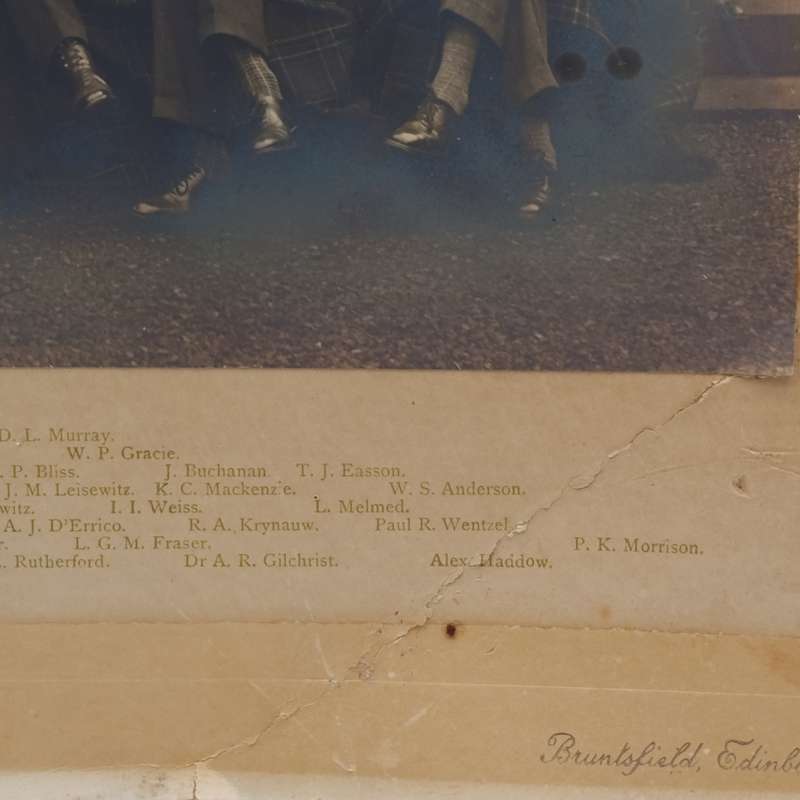 D. L. Murray.
W. P. Gracie.
P. Bliss. J. Buchanan. T. J. Easson.
J. M. Leisewitz. K. C. Mackenz'e. W. S. Anderson.
witz. I. I. Weiss. L. Melmed.
A. J. D'Errico. R. A. Krynauw. Paul R. Wentzel.
r. L. G. M. Fraser. P. K. Morrison.
Rutherford. Dr A. R. Gilchrist. Alex. Haddow.
Bruntsfield, Edinb